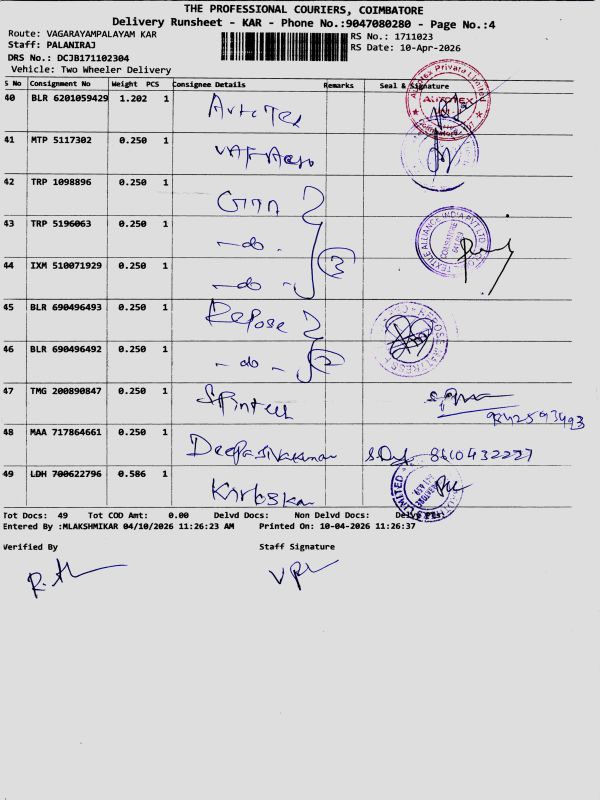 THE PROFESSIONAL COURIERS, COIMBATORE
Delivery Runsheet - KAR - Phone No.:9047080280 - Page No.:4
Route: VAGARAYAMPALAYAM KAR
RS No.: 1711023
Staff: PALANIRAJ
RS Date: 10-Apr-2026
DRS No.: DCJB171102304
Vehicle: Two Wheeler Delivery
S No Consignment No Weight PCS Consignee Details Remarks Seal & Signature
40 BLR 6201059429 1.202 1 Autotex
AUTOTEX
41 MTP 5117302 0.250 1
42 TRP 1098896 0.250 1
43 TRP 5196063 0.250 1 -do-
TEXTILE ALLIANCE INDIA PVT LTD
COIMBATORE
3
44 IXM 510071929 0.250 1 -do-
45 BLR 690496493 0.250 1 Repose
REPOSE MATTRESS
46 BLR 690496492 0.250 1 -do- 2
47 TMG 200890847 0.250 1 Spintech
9842593493
48 MAA 717864661 0.250 1 Deepa Sivakumar 8610432227
49 LDH 700622796 0.586 1 Kirloskar
LIMITED
Tot Docs: 49 Tot COD Amt: 0.00 Delvd Docs: Non Delvd Docs:
Entered By :MLAKSHMIKAR 04/10/2026 11:26:23 AM Printed On: 10-04-2026 11:26:37
Verified By Staff Signature